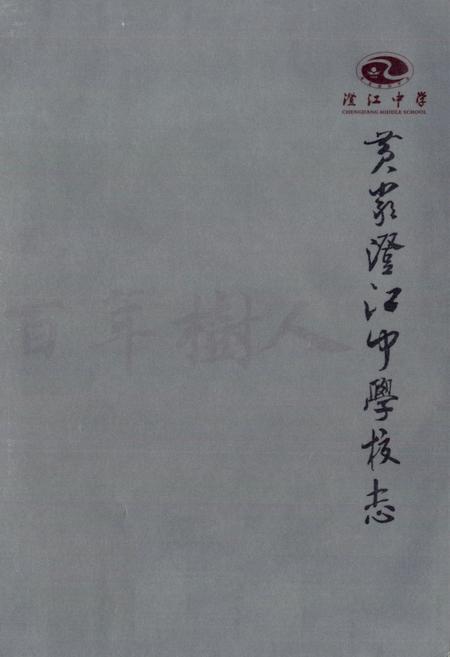 澄江中学
CHENGJIANG MIDDLE SCHOOL
黄岩澄江中學校志
百年樹人